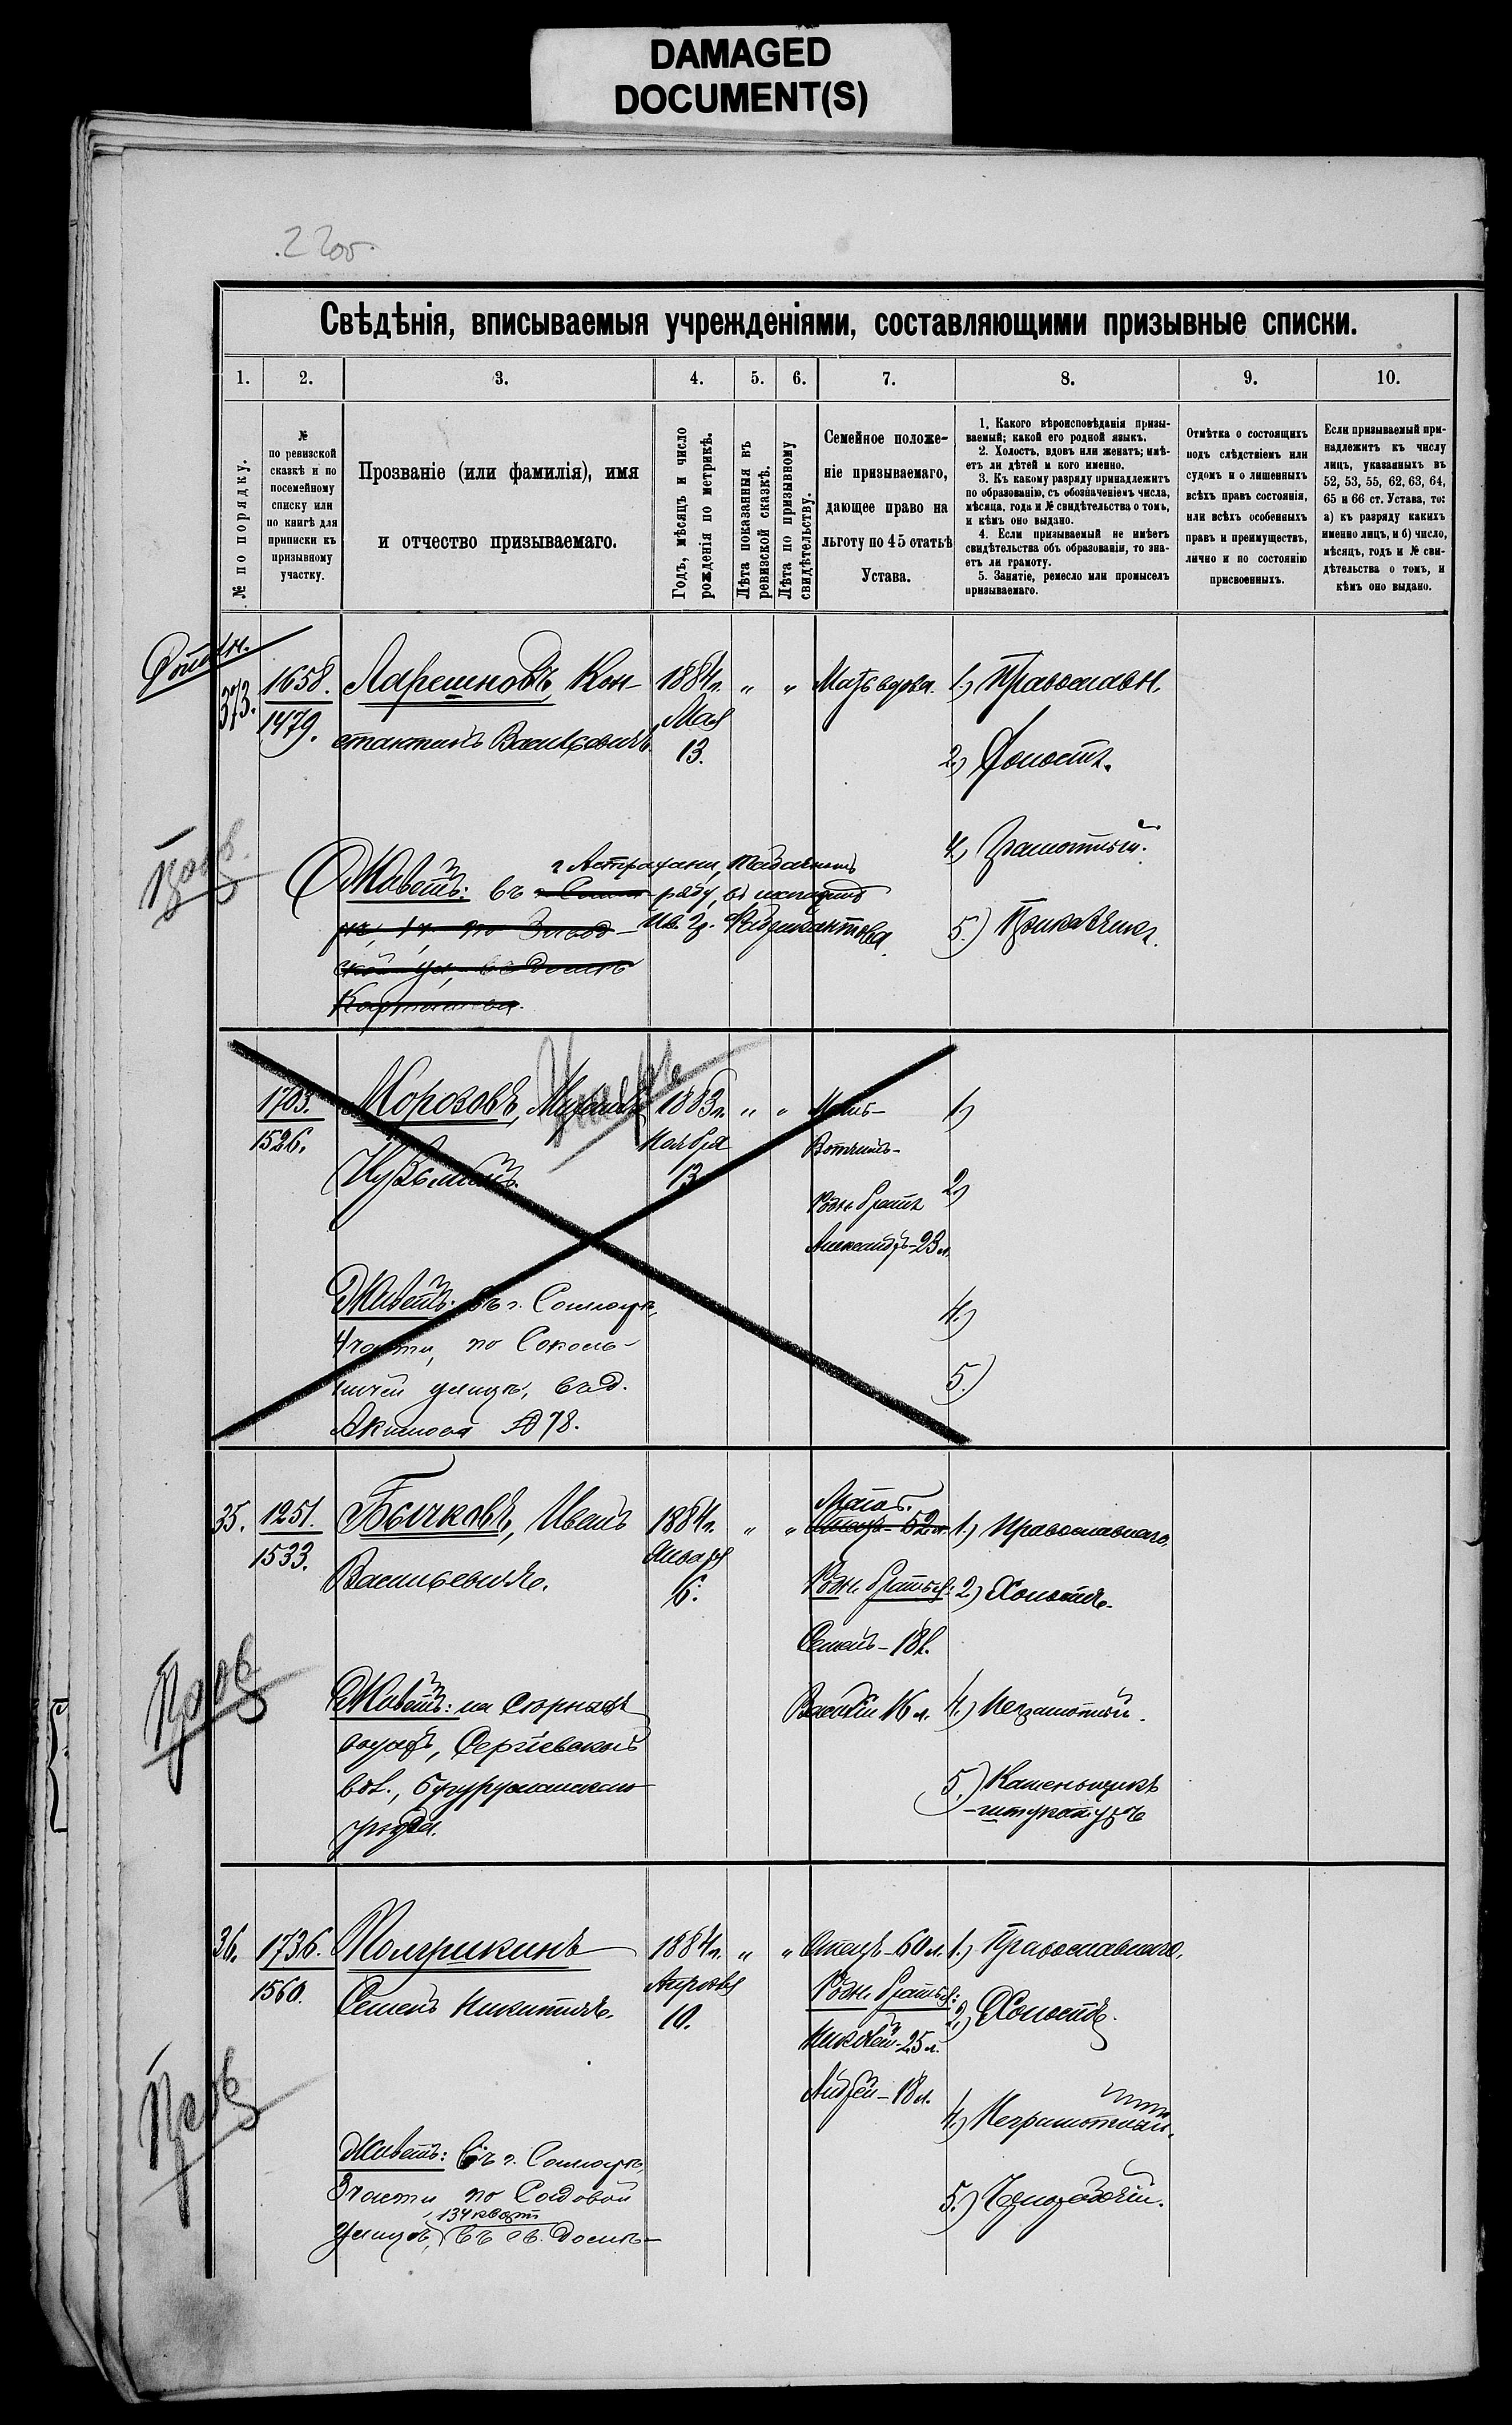 DAMAGED
DOCUMENT(S)
22об.
Свѣдѣнія, вписываемыя учрежденіями, составляющими призывные списки.
1. 2. 3. 4. 5. 6. 7. 8. 9. 10.
№ по порядку.
№
по ревизской
сказкѣ и по
посемейному
списку или
по книгѣ для
приписки къ
призывному
участку.
Прозваніе (или фамилія), имя
и отчество призываемаго.
Годъ, мѣсяцъ и число
рожденія по метрикѣ.
Лѣта показанныя въ
ревизской сказкѣ.
Лѣта по призывному
свидѣтельству.
Семейное положе-
ніе призываемаго,
дающее право на
льготу по 45 статьѣ
Устава.
1. Какого вѣроисповѣданія призы-
ваемый; какой его родной языкъ.
2. Холостъ, вдовъ или женатъ; имѣ-
етъ ли дѣтей и кого именно.
3. Къ какому разряду принадлежитъ
по образованію, съ обозначеніемъ числа,
мѣсяца, года и № свидѣтельства о томъ,
и кѣмъ оно выдано.
4. Если призываемый не имѣетъ
свидѣтельства объ образованіи, то зна-
етъ ли грамоту.
5. Занятіе, ремесло или промыселъ
призываемаго.
Отмѣтка о состоящихъ
подъ слѣдствіемъ или
судомъ и о лишенныхъ
всѣхъ правъ состоянія,
или всѣхъ особенныхъ
правъ и преимуществъ,
лично и по состоянію
присвоенныхъ.
Если призываемый при-
надлежитъ къ числу
лицъ, указанныхъ въ
52, 53, 55, 62, 63, 64,
65 и 66 ст. Устава, то:
а) къ разряду какихъ
именно лицъ, и б) число,
мѣсяцъ, годъ и № сви-
дѣтельства о томъ, и
кѣмъ оно выдано.
373.
1658.
1479.
Адрешновъ, Кон-
стантинъ Васильевичъ.
1884г.
Мая
13.
" "
Мать вдова.
1.) Православн.
2.) Холостъ.
4.) Грамотный.
5.) Прикащикъ.
Живетъ: въ
г. Астрахани,
ряду, въ магазинѣ
1703.
1526.
Морозовъ, Михаилъ
Кузьмичъ.
Умеръ
1883г.
Ноября
13
" "
Мать-
Вотчимъ-
Родн. братъ
Александръ-23л.
1.)
2.)
4.)
5.)
Живетъ: въ г. Самарѣ,
4 части, по Соколь-
ничей улицѣ, въ д.
Акимова №78.
35.
1251.
1533.
Бычковъ, Иванъ
Васильевичъ.
1884г.
Января
6.
" "
Мать.
Отецъ-52л.
Родн. братья:
Семенъ-18л.
Василій 16л.
1.) Православнаго.
2.) Холостъ.
4.) Неграмотный.
5.) Каменьщикъ
-штукатуръ
Живетъ: на Сѣрныхъ
водахъ, Сергіевской
вол., Бугурусланскаго
уѣзда.
36.
1736.
1560.
Молгрикинъ
Семенъ Никитичъ.
1884г.
Апрѣля
10.
" "
Отецъ-60л.
Родн. братья:
Николай-25л.
Андрей-18л.
1.) Православнаго.
2.) Холостъ.
4.) Неграмотный.
5.) Чернорабочій.
Живетъ: въ г. Самарѣ,
3 части по Садовой
134 кварт
улицѣ, въ св. домѣ-